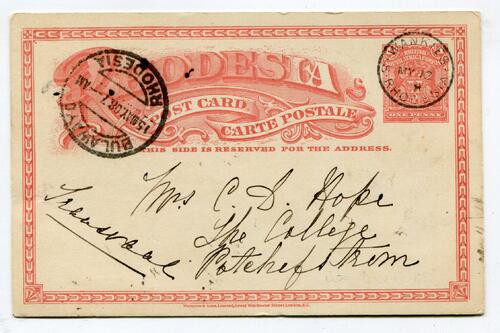 RHODESIA
POST CARD
CARTE POSTALE
THIS SIDE IS RESERVED FOR THE ADDRESS.
BULAWAYO
RHODESIA
AM
WANKIES
MY 12
8
ONE PENNY
Mrs C. D. Hope
The College
Potchefstrom
Transvaal